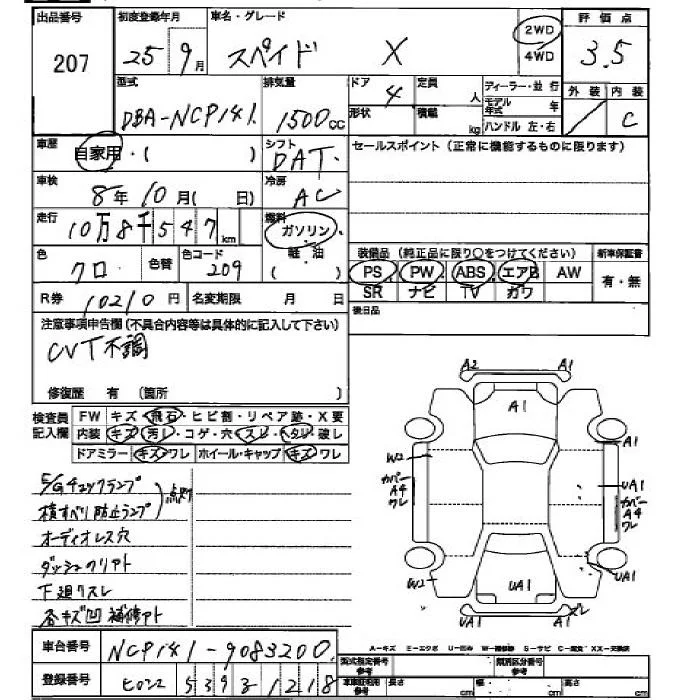 出品番号 初度登録年月 車名・グレード 2WD 評価点
207 25年 9月 スペイド X 4WD 3.5
型式 排気量 ドア 定員 ディーラー・並行 外装 内装
DBA-NCP141 1500cc 4 人 モデル年式 年
形状 積載 kg ハンドル 左・右 C
車歴 自家用・( ) シフト DAT セールスポイント(正常に機能するものに限ります)
車検 8年10月( 日) 冷房 AC
走行 10万8千547km 燃料 ガソリン・軽油
色 クロ 色替 色コード 209
装備品(純正品に限り○をつけてください) 新車保証書
PS PW ABS エアB AW 有・無
SR ナビ TV ガワ
R券 10210円 名変期限 月 日 後日品
注意事項申告欄(不具合内容等は具体的に記入して下さい)
CVT不調
修復歴 有 (箇所 )
検査員記入欄 FW キズ・飛石・ヒビ割・リペア跡・X要
内装 キズ・汚レ・コゲ・穴・スレ・ヘタレ・破レ
ドアミラー キズ・ワレ ホイール・キャップ キズ・ワレ
E/Gチェックランプ
横すべり防止ランプ 点灯
オーディオレス穴
ダッシュクリアト
下廻リスレ
各キズ凹 補修アト
A2 A1
A1
A1
W2
カバーA4ワレ
UA1
カバーA4ワレ
W2 UA1
UA1
UA1 A1
車台番号 NCP141-9083200
A-キズ E-エクボ U-凹み W-補修跡 S-サビ C-腐食 XX-交換済
型式指定番号 参考 類別区分番号 参考
登録番号 5393 1218
長さ cm 幅 cm 高さ cm